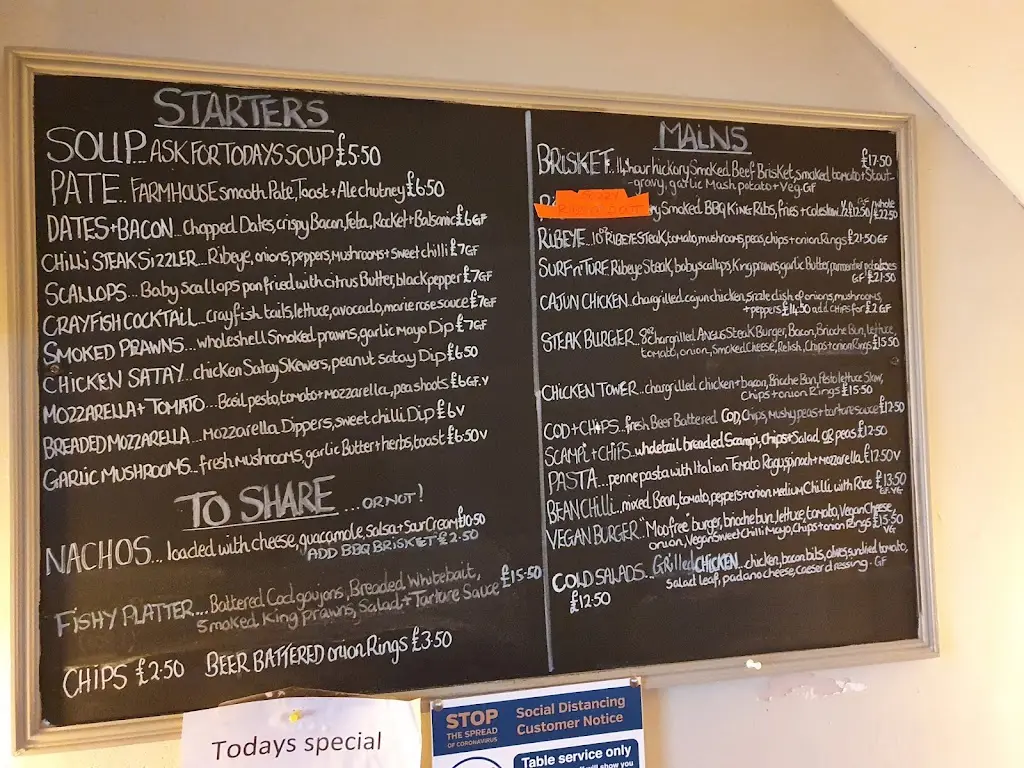 STARTERS
SOUP... ASK FOR TODAYS SOUP £5.50
PATE.. FARMHOUSE smooth Pate, Toast + Ale chutney £6.50
DATES + BACON... Chopped Dates, crispy Bacon, feta, Rocket + Balsamic £6 GF
CHILLI STEAK SIZZLER... Ribeye, onions, peppers, mushrooms + sweet chilli £7 GF
SCALLOPS... Baby scallops pan fried with citrus Butter, black pepper £7 GF
CRAYFISH COCKTAIL... crayfish tails, lettuce, avocado, marie rose sauce £7 GF
SMOKED PRAWNS... whole shell Smoked prawns, garlic Mayo Dip £7 GF
CHICKEN SATAY... chicken Satay Skewers, peanut satay Dip £6.50
MOZZARELLA + TOMATO... Basil pesto, tomato + mozzarella, pea shoots £6 GF.V
BREADED MOZZARELLA... Mozzarella Dippers, sweet chilli Dip £6 V
GARLIC MUSHROOMS... fresh mushrooms, garlic Butter + herbs, toast £6.50 V
TO SHARE ... OR NOT!
NACHOS... loaded with cheese, guacamole, Salsa + Sour Cream £10.50
ADD BBQ BRISKET £2.50
FISHY PLATTER.... Battered Cod goujons, Breaded Whitebait, £15.50
Smoked King prawns, Salad + Tarture Sauce
CHIPS £2.50 BEER BATTERED onion Rings £3.50
MAINS
BRISKET.. 14 hour hickory Smoked Beef Brisket, smoked tomato + Stout £17.50
-gravy, garlic Mash potato + Veg. GF
ry Smoked BBQ King Ribs, fries + coleslaw ½ £12.50/ whole £22.50
RIBEYE... 10oz RIBEYE Steak, tomato, mushrooms, peas, chips + onion Rings £21.50 GF
SURF n' TURF Ribeye Steak, baby scallops, King prawns, garlic Butter, parmentier potatoes
GF £21.50
CAJUN CHICKEN. chargrilled cajun chicken, sizzle dish of onions, mushrooms,
+ peppers £14.50 add CHIPS for £2 GF
STEAK BURGER. 8oz chargrilled Angus Steak Burger, Bacon, Brioche Bun, lettuce,
tomato, onion, Smoked Cheese, Relish, Chips + onion Rings £15.50
CHICKEN TOWER... chargrilled chicken + bacon, Brioche Bun, Pesto lettuce Slaw,
Chips + onion Rings £15.50
COD + CHIPS... fresh Beer Battered COD, Chips, Mushy peas + tarture sauce £12.50
SCAMPI + CHIPS.. wholetail breaded Scampi, Chips + Salad or peas £12.50
PASTA... penne pasta with Italian Tomato Ragu, spinach + mozzarella £12.50 V
BEAN CHILLI.. mixed Bean, tomato, peppers + onion Medium Chilli with Rice £13.50
GF. VG
VEGAN BURGER.. "Moo free" burger, brioche bun, lettuce, tomato, Vegan Cheese,
onion, Vegan Sweet Chilli Mayo, Chips + onion Rings £15.50
VG
COLD SALADS... Grilled CHICKEN... chicken, bacon bits, olives, sundried tomato,
salad leaf, padano cheese, caeser dressing. GF
£12.50
Todays special
STOP
THE SPREAD
OF CORONAVIRUS
Social Distancing
Customer Notice
Table service only
will show you